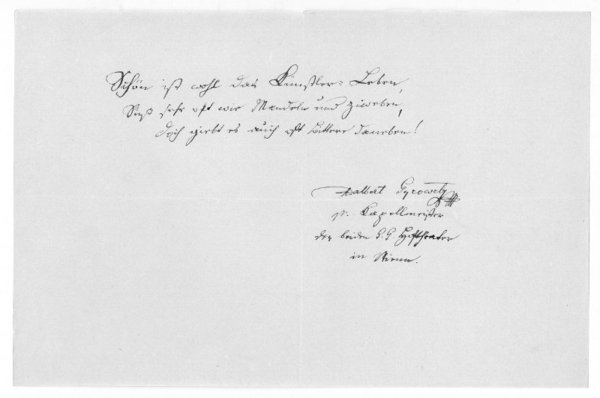 Schön ist wohl das Künstler-Leben,
Süß sehr oft wie Mandeln und Ziweben,
Doch giebt es auch oft bittere daneben!
Adalbert Gyrowetz
p. Kapellmeister
der beiden Hoftheater
in Wien.